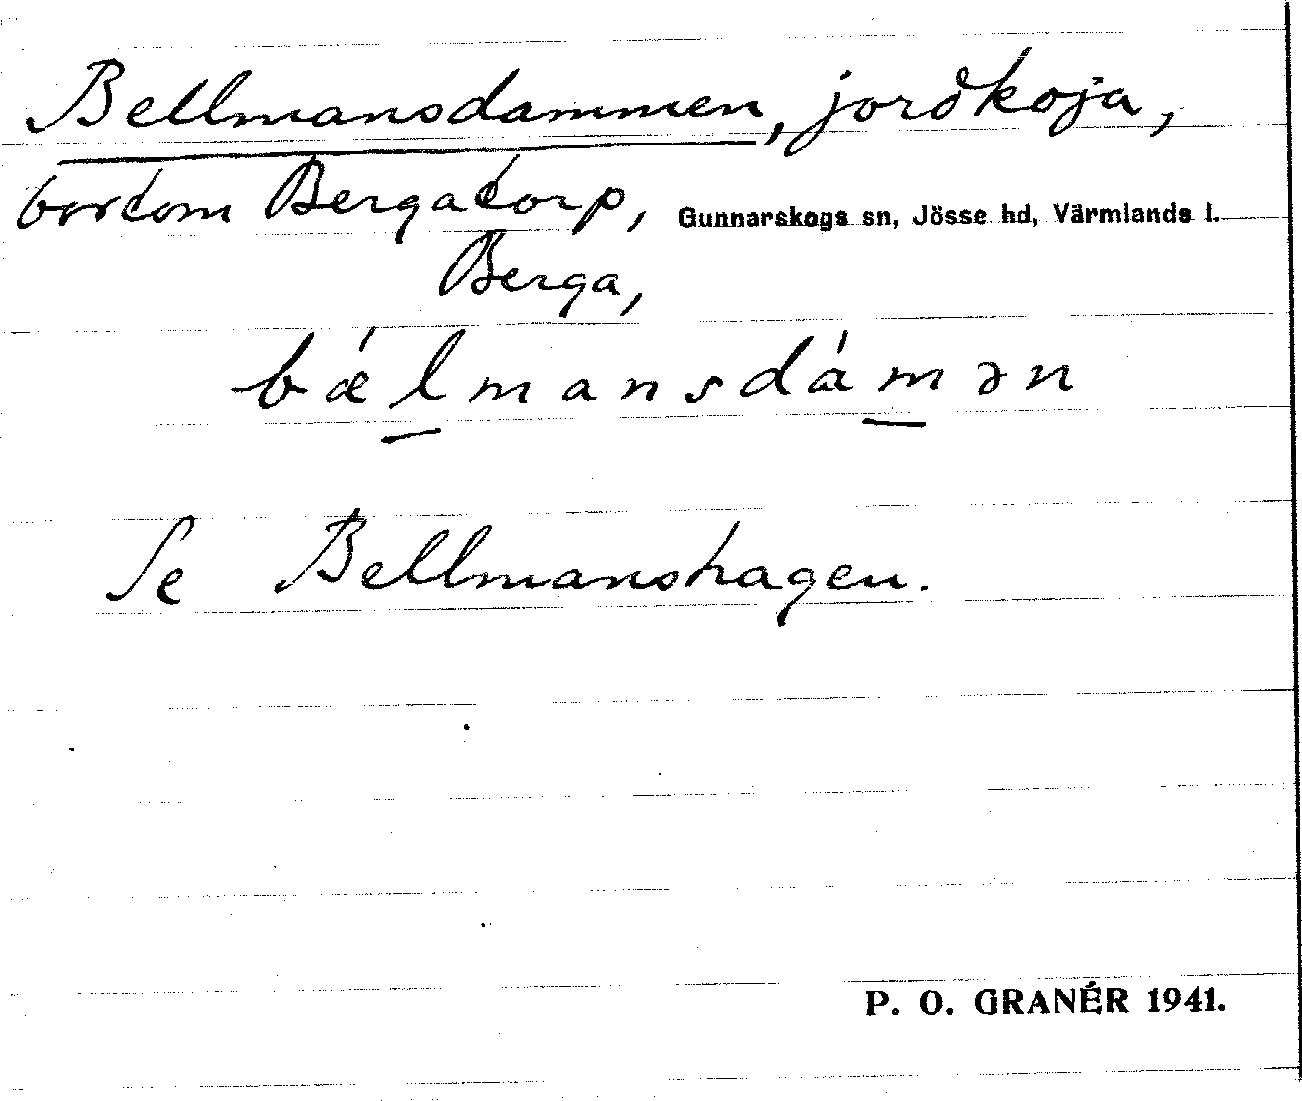 Bellmansdammen, jordkoja,
bortom Bergatorp, Gunnarskogs sn, Jösse hd, Värmlands l.
Berga,
bǽl̠mansdám̠ən
Se Bellmanshagen.
P. O. GRANÉR 1941.